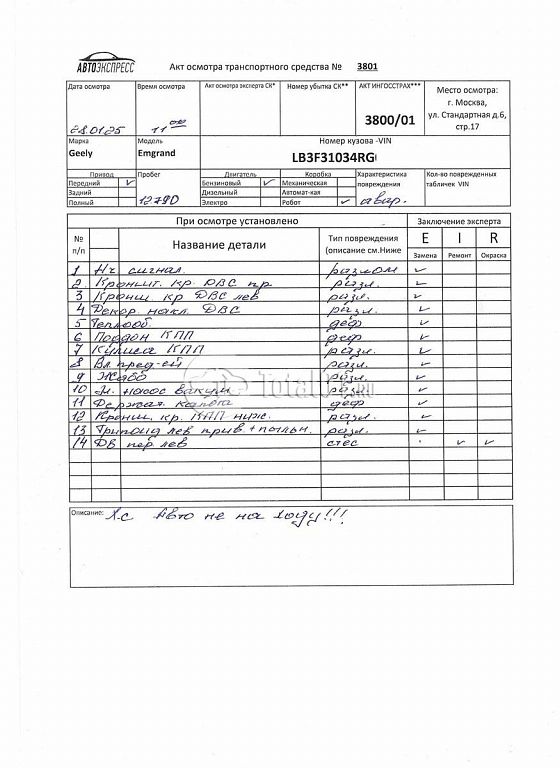 АВТОЭКСПРЕСС
Акт осмотра транспортного средства № 3801
Дата осмотра Время осмотра Акт осмотра эксперта СК* Номер убытка СК** АКТ ИНГОССТРАХ*** Место осмотра:
г. Москва,
ул. Стандартная д.6,
стр.17
28.01.25 11 00 3800/01
Марка Модель Номер кузова -VIN
Geely Emgrand LB3F31034RG
Привод Пробег Двигатель Коробка Характеристика повреждения Кол-во поврежденных табличек VIN
Передний ✓ Бензиновый ✓ Механическая
Задний Дизельный Автомат-кая
Полный 12790 Электро Робот ✓ авар.
При осмотре установлено Заключение эксперта
№ п/п Название детали Тип повреждения (описание см.Ниже E I R
Замена Ремонт Окраска
1 Нч сигнал. разлом ✓
2. Кроншт. кр. ДВС пр. разл. ✓
3 Кронш. кр ДВС лев разл. ✓
4 Декор. накл. ДВС разл. ✓
5 Теплооб. деф ✓
6 Поддон КПП деф ✓
7 Кулиса КПП разл. ✓
8 Бл пред-ей разл. ✓
9 Жабо разл. ✓
10 Эл. насос вакуум разл ✓
11 Держат. капота деф ✓
12 Кронш. кр. КПП ниж. разл. ✓
13 Трипоид лев прив. + пыльн. разл. ✓
14 ДВ пер лев стес ✓ ✓
Total
.RU
Описание: Х.с Авто не на ходу!!!